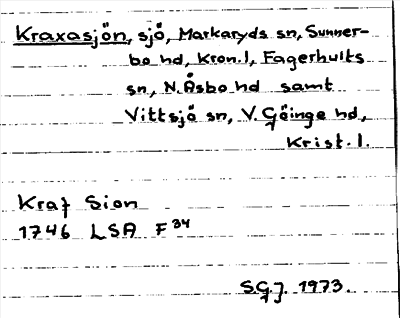 Kraxasjön, sjö, Markaryds sn, Sunner-
bo hd, Kron.l, Fagerhults
sn, N. Åsbo hd samt
Vittsjö sn, V. Göinge hd,
Krist. l.
Kraf Sion
1746 LSA F 34
S.G.J. 1973.